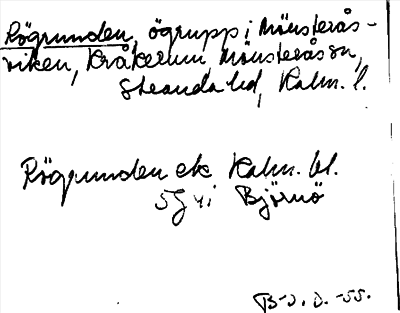 Rögrunden, ögrupp i Mönsterås-
viken, Kråkerum, Mönsterås sn,
Stranda hd, Kalm. l.
Rögrunden ek Kalm. bl.
5G Björnö
B-J. D. -55.